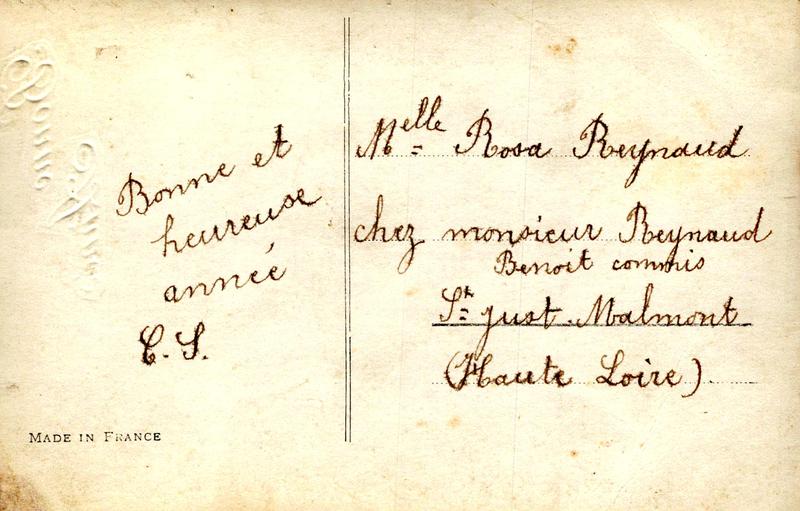 Bonne
Année
Bonne et
heureuse
année
C. S.
MADE IN FRANCE
Melle Rosa Reynaud
chez monsieur Reynaud
Benoit commis
St Just-Malmont
(Haute Loire)